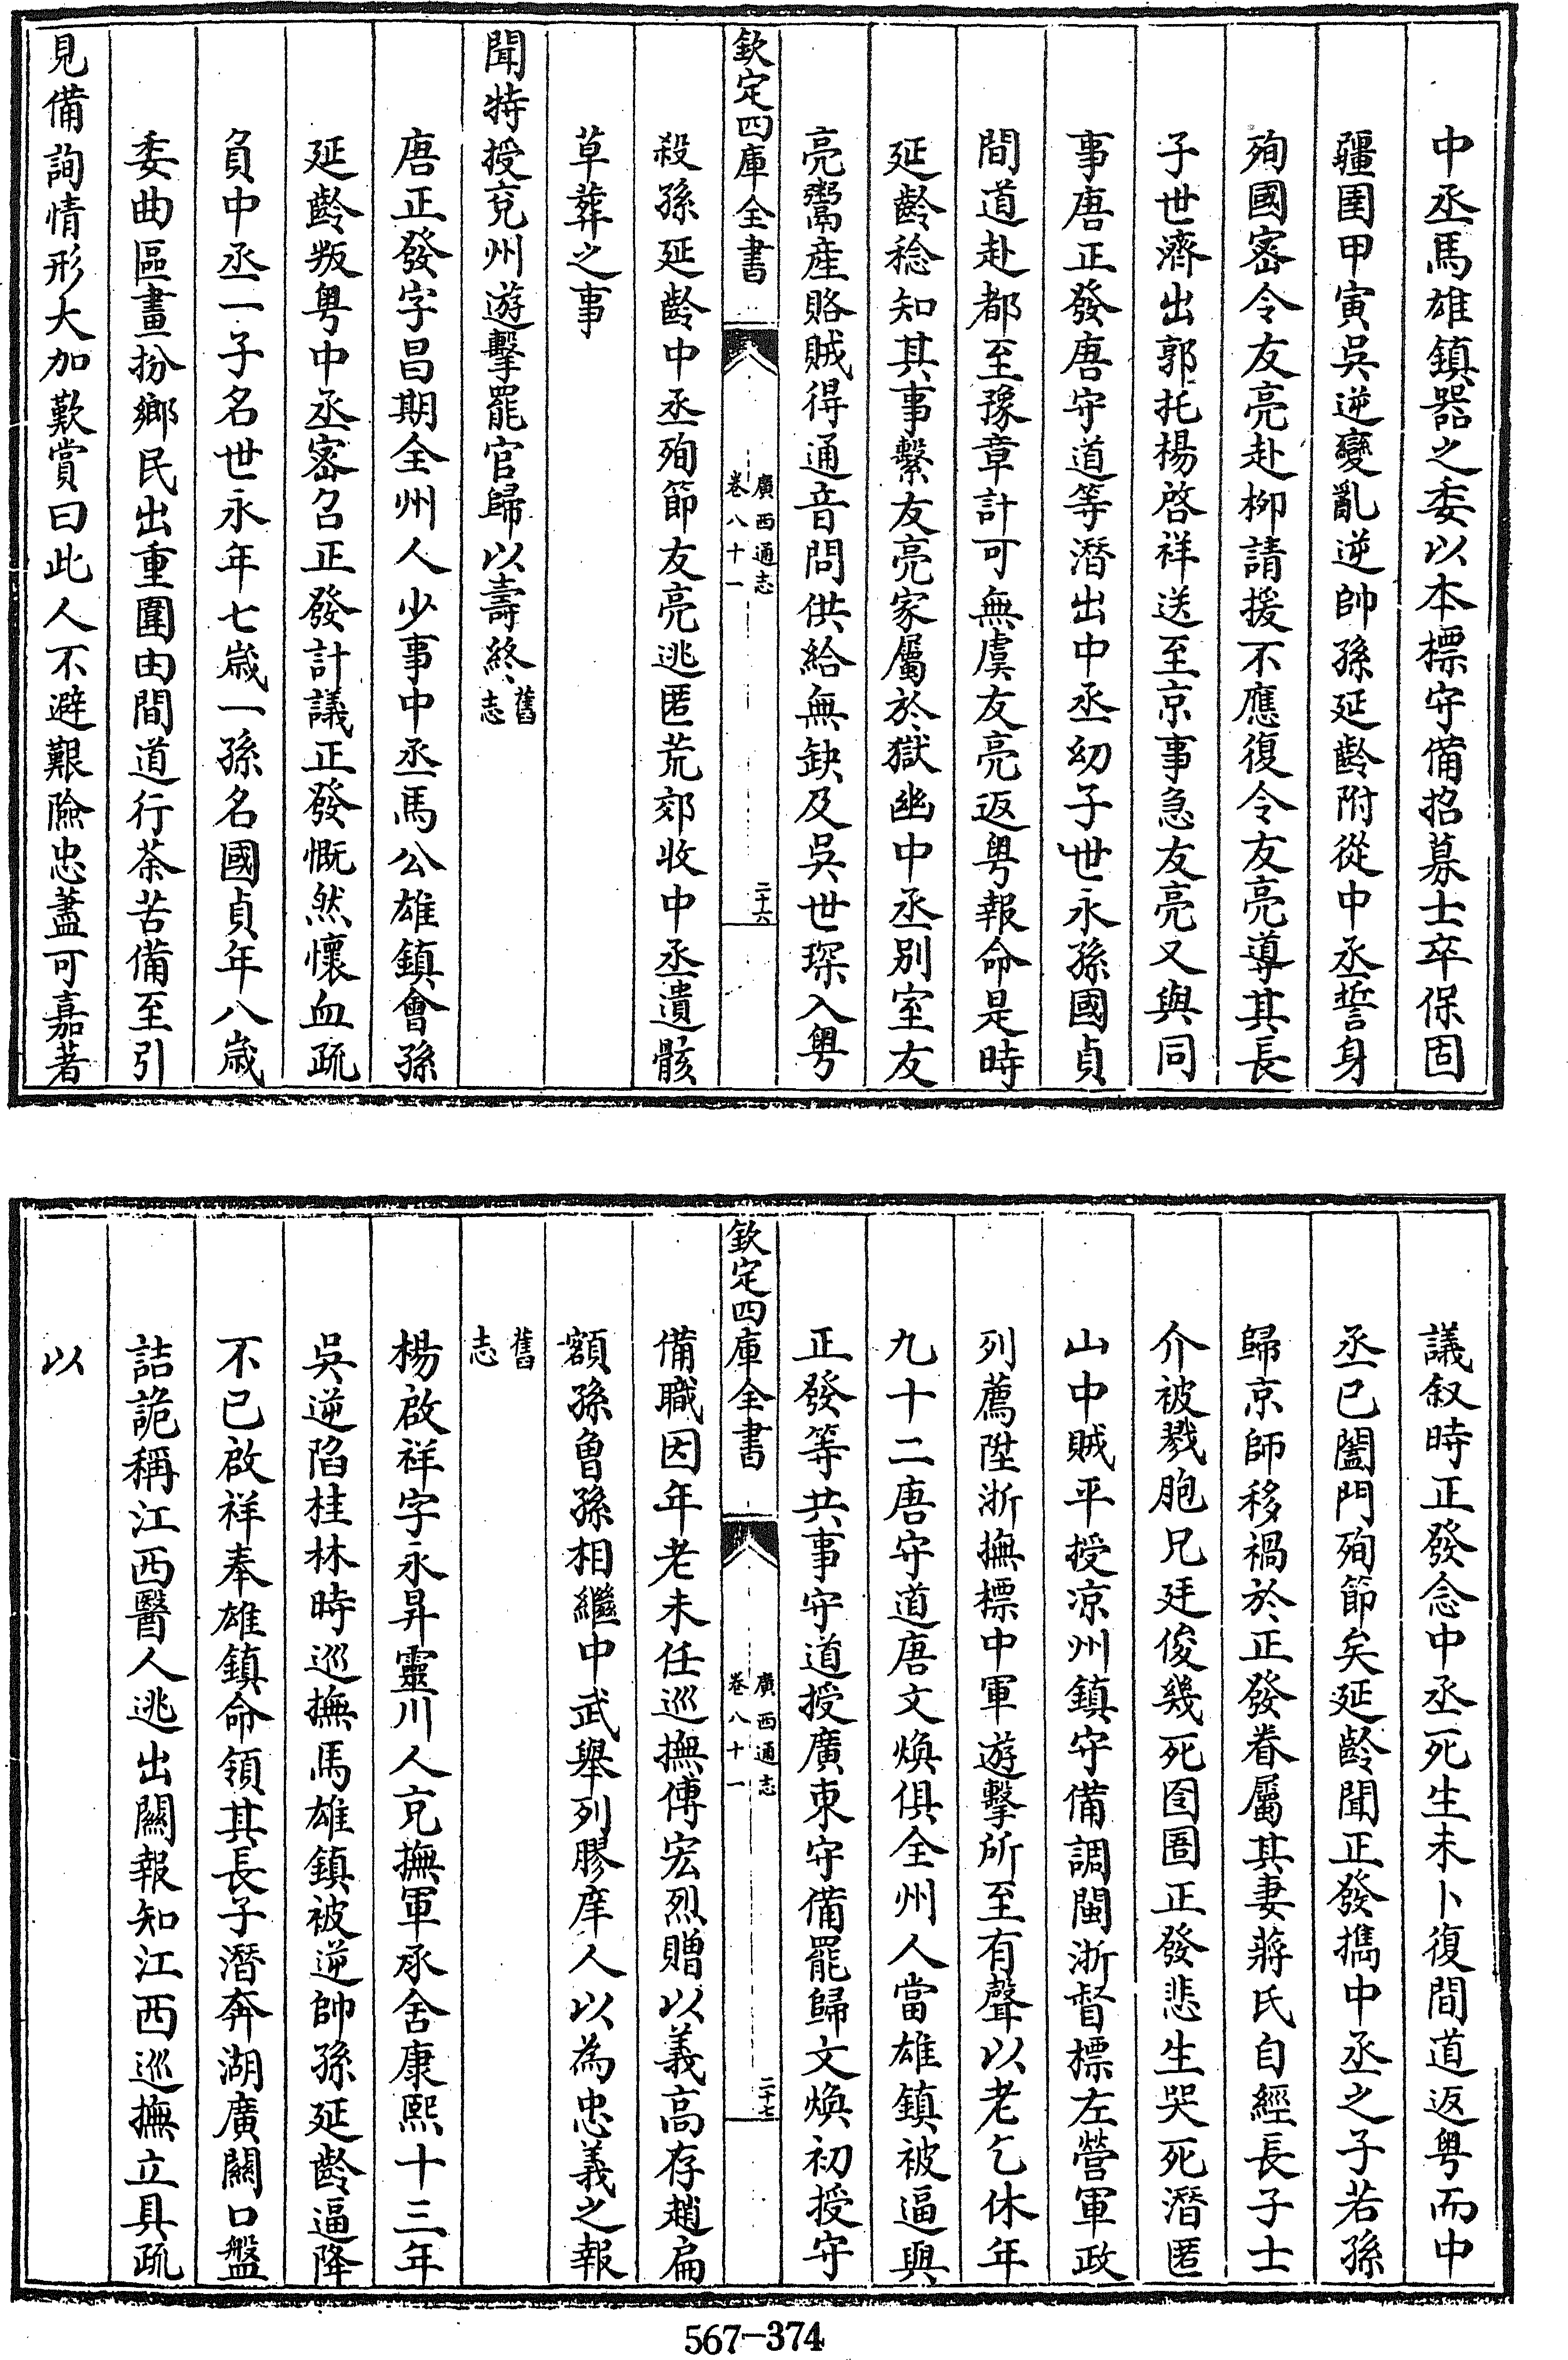 中丞馬雄鎮器之委以本標守備招募士卒保固
疆圉甲寅吳逆變亂逆帥孫延齡附從中丞誓身
殉國密令友亮赴柳請援不應復令友亮導其長
子世濟出郭托楊啓祥送至京事急友亮又與同
事唐正發唐守道等潛出中丞幼子世永孫國貞
間道赴都至豫章計可無虞友亮返粤報命是時
延齡稔知其事繫友亮家屬於獄幽中丞别室友
亮鬻產賂賊得通音問供給無缺及吳世琛入粤
欽定四庫全書
廣西通志
卷八十一
二十六
殺孫延齡中丞殉節友亮逃匿荒郊收中丞遺骸
草葬之事
聞特授兗州遊擊罷官歸以壽終舊志
唐正發字昌期全州人少事中丞馬公雄鎮會孫
延齡叛粤中丞密召正發計議正發慨然懷血疏
負中丞一子名世永年七歲一孫名國貞年八歲
委曲區畫扮鄉民出重圍由間道行荼苦備至引
見備詢情形大加歎賞曰此人不避艱險忠藎可嘉著
議叙時正發念中丞死生未卜復間道返粤而中
丞已闔門殉節矣延齡聞正發擕中丞之子若孫
歸京師移禍於正發眷屬其妻蔣氏自經長子士
介被戮胞兄廷俊幾死囹圄正發悲生哭死潛匿
山中賊平授凉州鎮守備調閩浙督標左營軍政
列薦陞浙撫標中軍遊擊所至有聲以老乞休年
九十二唐守道唐文煥俱全州人當雄鎮被逼與
正發等共事守道授廣東守備罷歸文煥初授守
欽定四庫全書
廣西通志
卷八十一
二十七
備職因年老未任巡撫傅宏烈贈以義高存趙扁
額孫曾孫相繼中武舉列膠庠人以為忠義之報
舊志
楊啟祥字永昇靈川人充撫軍承舍康熙十三年
吳逆陷桂林時巡撫馬雄鎮被逆帥孫延齡逼降
不已啟祥奉雄鎮命領其長子潛奔湖廣關口盤
詰詭稱江西醫人逃出關報知江西巡撫立具疏
以
567-374